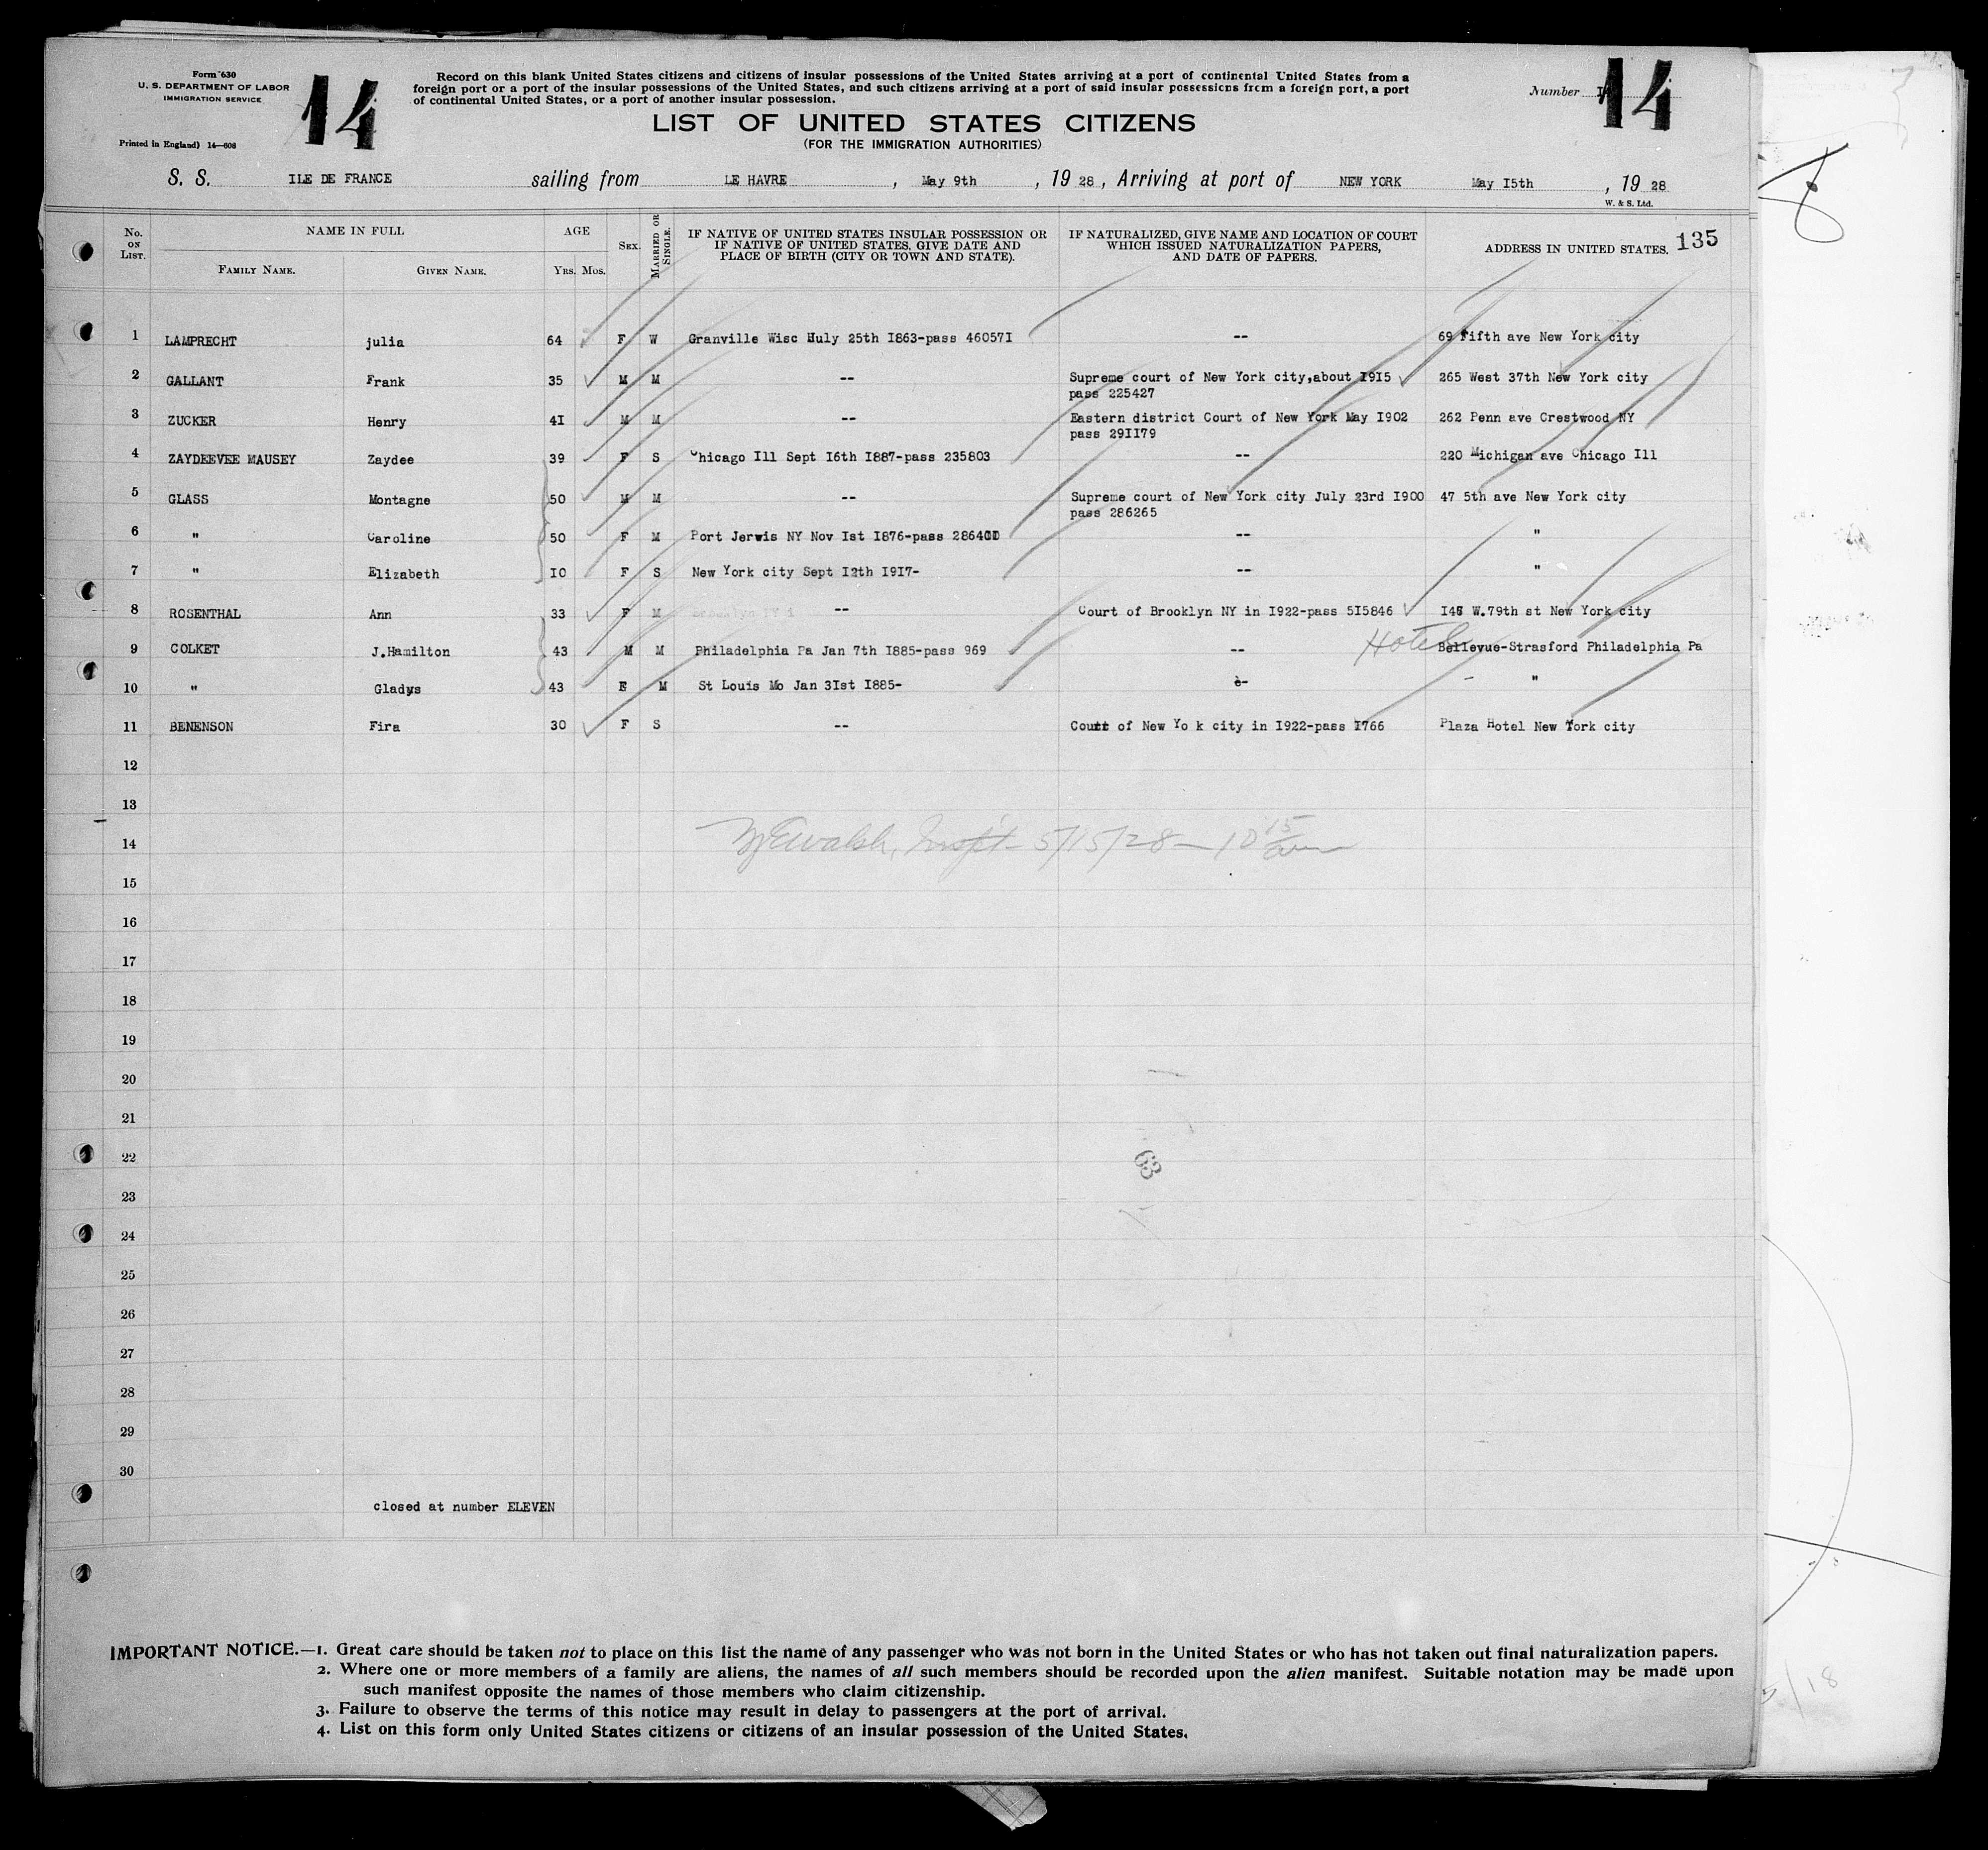 Form 630
U. S. DEPARTMENT OF LABOR
IMMIGRATION SERVICE
Printed in England) 14—608
14
Record on this blank United States citizens and citizens of insular possessions of the United States arriving at a port of continental United States from a
foreign port or a port of the insular possessions of the United States, and such citizens arriving at a port of said insular possessions from a foreign port, a port
of continental United States, or a port of another insular possession.
Number 14
LIST OF UNITED STATES CITIZENS
(FOR THE IMMIGRATION AUTHORITIES)
S. S. ILE DE FRANCE sailing from LE HAVRE, May 9th, 19 28, Arriving at port of NEW YORK May I5th, 19 28
W. & S. Ltd.
135
No. ON LIST. NAME IN FULL FAMILY NAME. GIVEN NAME. AGE Yrs. Mos. SEX. MARRIED OR SINGLE. IF NATIVE OF UNITED STATES INSULAR POSSESSION OR IF NATIVE OF UNITED STATES, GIVE DATE AND PLACE OF BIRTH (CITY OR TOWN AND STATE). IF NATURALIZED, GIVE NAME AND LOCATION OF COURT WHICH ISSUED NATURALIZATION PAPERS, AND DATE OF PAPERS. ADDRESS IN UNITED STATES.
1 LAMPRECHT julia 64 F W Granville Wisc Huly 25th I863-pass 46057I -- 69 fifth ave New York city
2 GALLANT Frank 35 M M -- Supreme court of New York city,about I9I5 265 West 37th New York city
pass 225427
3 ZUCKER Henry 4I M M -- Eastern district Court of New York May I902 262 Penn ave Crestwood NY
pass 29II79
4 ZAYDEEVEE MAUSEY Zaydee 39 F S Chicago Ill Sept I6th I887-pass 235803 -- 220 Michigan ave Chicago Ill
5 GLASS Montagne 50 M M -- Supreme court of New York city July 23rd I900 47 5th ave New York city
pass 286265
6 " Caroline 50 F M Port Jerwis NY Nov Ist I876-pass -- "
7 " Elizabeth I0 F S New York city Sept I2th I9I7- -- "
8 ROSENTHAL Ann 33 F M -- Court of Brooklyn NY in I922-pass 5I5846 W.79th st New York city
9 COLKET J.Hamilton 43 M M Philadelphia Pa Jan 7th I885-pass 969 -- Hotel Bellevue-Strasford Philadelphia Pa
10 " Gladys 43 F M St Louis Mo Jan 3Ist I885- - "
11 BENENSON Fira 30 F S -- Court of New Yo k city in I922-pass I766 Plaza Hotel New York city
12
13
14 Walsh, Insp't - 5/15/28 — 10 15 am
15
16
17
18
19
20
21
22
63
23
24
25
26
27
28
29
30
closed at number ELEVEN
IMPORTANT NOTICE.—1. Great care should be taken not to place on this list the name of any passenger who was not born in the United States or who has not taken out final naturalization papers.
2. Where one or more members of a family are aliens, the names of all such members should be recorded upon the alien manifest. Suitable notation may be made upon
such manifest opposite the names of those members who claim citizenship.
3. Failure to observe the terms of this notice may result in delay to passengers at the port of arrival.
4. List on this form only United States citizens or citizens of an insular possession of the United States.